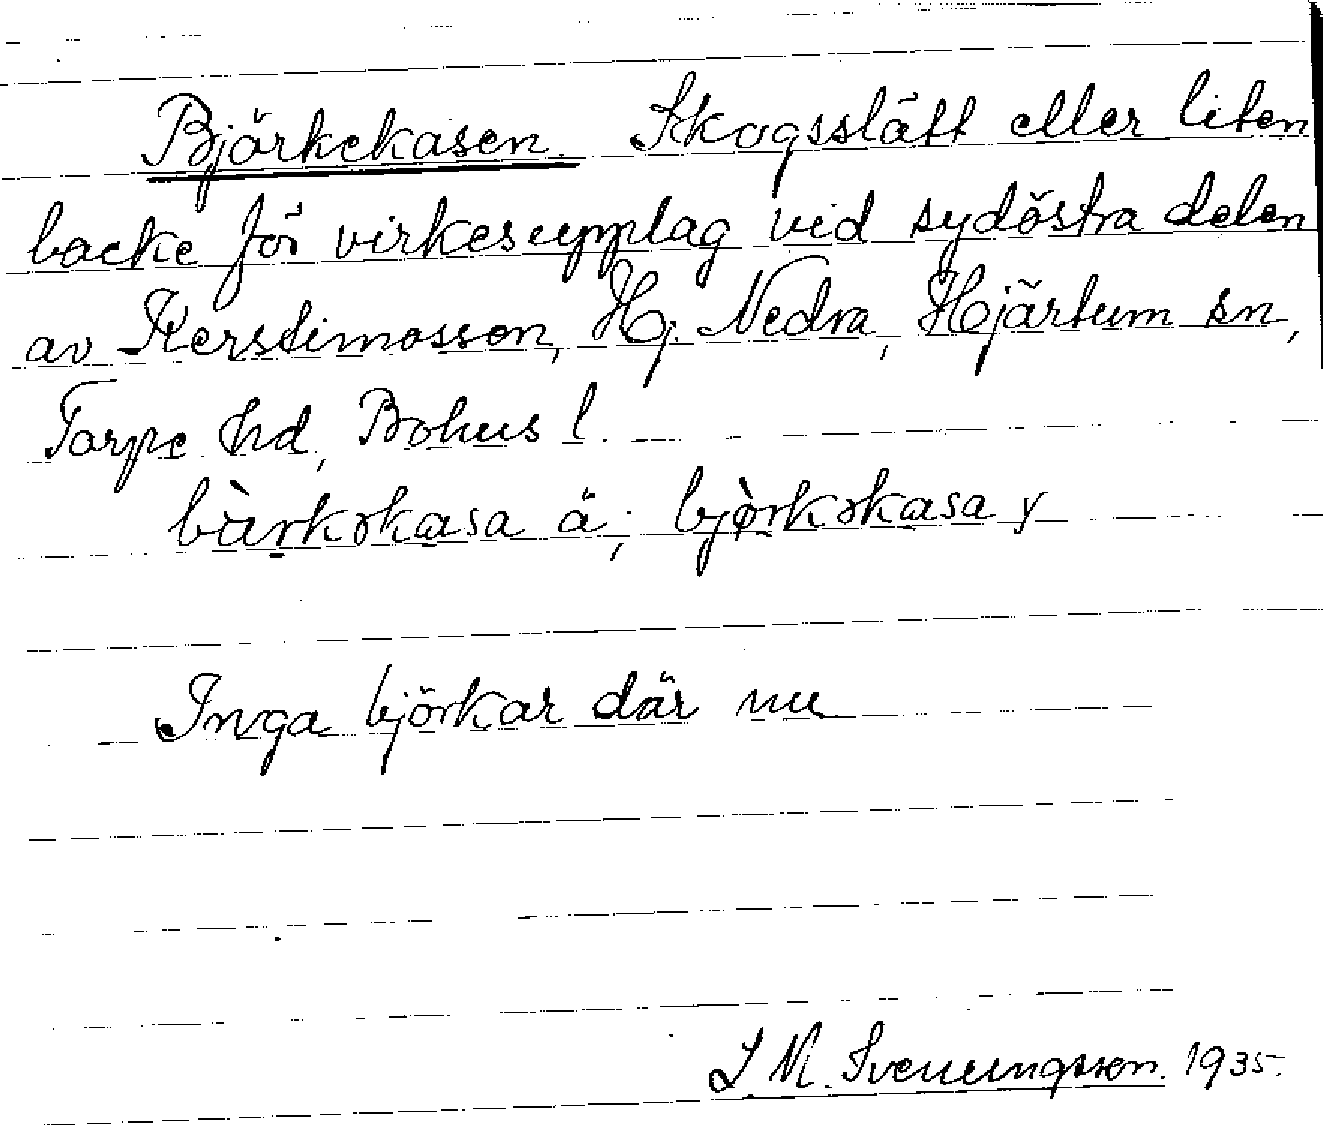 Björkekasen. Skogsslätt eller liten
backe för virkesupplag vid sydöstra delen
av Kerstimossen, Hj. Nedra, Hjärtum sn,
Torpe hd, Bohus l.
ä; y
Inga björkar där nu
J. M. Svenningsson. 1935.